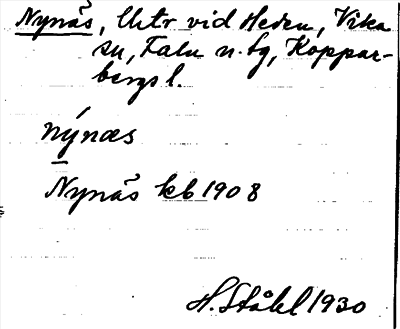 Nynäs, Untr vid Heden, Vika
sn, Falu n. tg, Koppar-
bergs l.
nýnæs
Nynäs kb 1908
H. Ståhl 1930